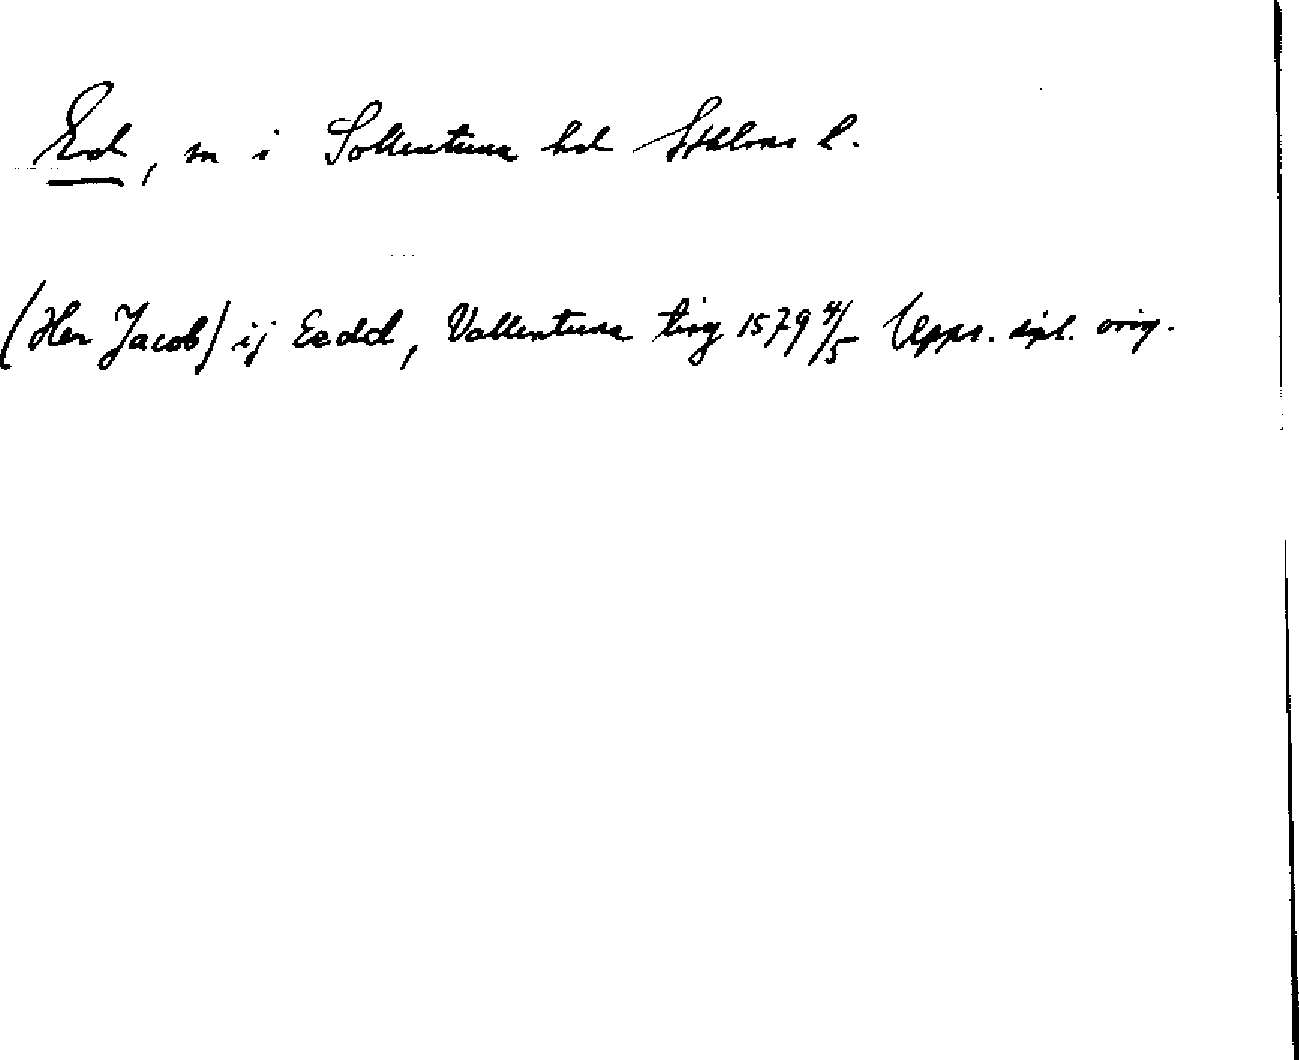 Ed, sn i Sollentuna hd Sthlms l.
(Her Jacob) ij Eedd, Vallentuna ting 1579 4/5 Upps. dipl. orig.